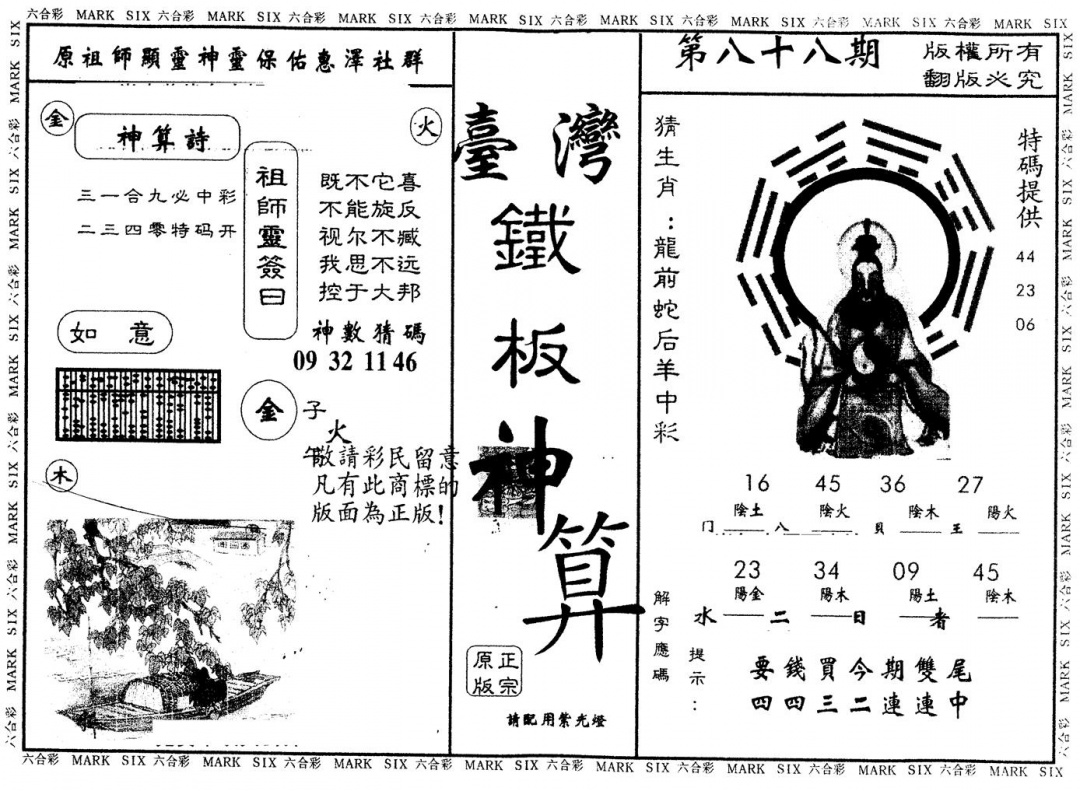 六合彩 MARK SIX 六合彩 MARK SIX 六合彩 MARK SIX 六合彩 MARK SIX 六合彩 MARK SIX 六合彩 MARK SIX 六合彩 MARK SIX 六合彩 MARK SIX
原祖師顯靈神靈保佑惠澤社群
金
神算詩
火
三一合九必中彩
二三四零特码开
祖師靈簽曰
既不它喜
不能旋反
视尔不臧
我思不远
控于大邦
神數猜碼
09 32 11 46
如意
金
子
火
午
敬請彩民留意
凡有此商標的
版面為正版!
木
臺灣
鐵
板
神
算
正宗
原版
請配用紫光燈
第八十八期
版權所有
翻版必究
猜生肖:龍前蛇后羊中彩
特碼提供
44
23
06
16 45 36 27
陰土 陰火 陰木 陽火
门 八 貝 王
23 34 09 45
陽金 陽木 陽土 陰木
水 二 日 者
解字應碼
提示:
要錢買今期雙尾
四四三二連連中
六合彩 MARK SIX 六合彩 MARK SIX 六合彩 MARK SIX 六合彩 MARK SIX 六合彩 MARK SIX 六合彩 MARK SIX 六合彩 MARK SIX 六合彩 MARK SIX